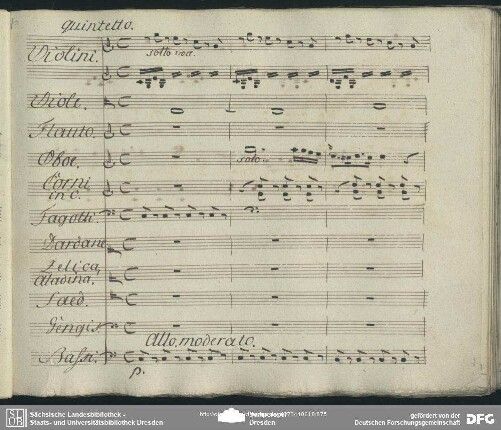 Quintetto.
Violini.
sotto voce.
Viole.
Flauto.
Oboe.
solo
Corni
in C.
Fagotti
Dardane
Zelica,
Aladina,
Saed.
Gengis
Allo. moderato.
Bassi.
p.
SLUB
Sächsische Landesbibliothek -
Staats- und Universitätsbibliothek Dresden
Dresden
gefördert von der
Deutschen Forschungsgemeinschaft
DFG